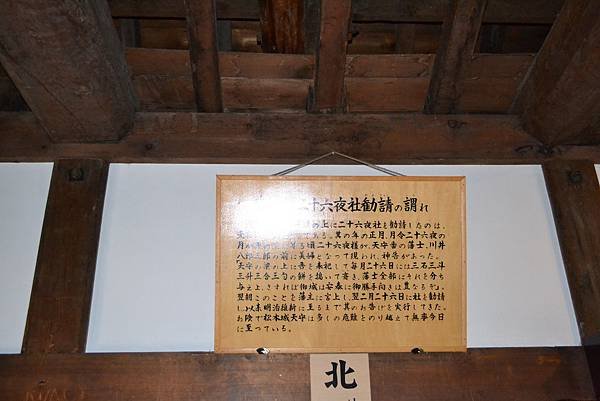 二十六夜社勧請の謂れ
の上に二十六夜社を勧請したのは、
ある。其の年の正月、月令二十六夜の
頃二十六夜様が、天守番の藩士、川井
八郎三郎の前に美婦となって現われ、神告があった。
天守の梁の上に吾を奉祀して毎月二十六日には三石三斗
三升三合三勺の餅を搗いて斎き、藩士全部にそれを分ち
与えよ、さすれば御城は安泰に御勝手向きは豊なるぞ。
翌朝このことを藩主に言上し、翌二月二十六日に社を勧請
し以来明治維新に至るまで其のお告げを実行してきた。
お陰で松本城天守は多くの危難をのり越えて無事今日
に至っている。
北